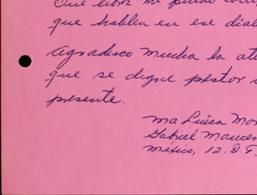 Que libro me puede
que hablen en ese dial
agradisco mucha la ate
que se digne prestar
presente.
Ma Luisa Mor
Gabriel Mancer
México, 12. D F.